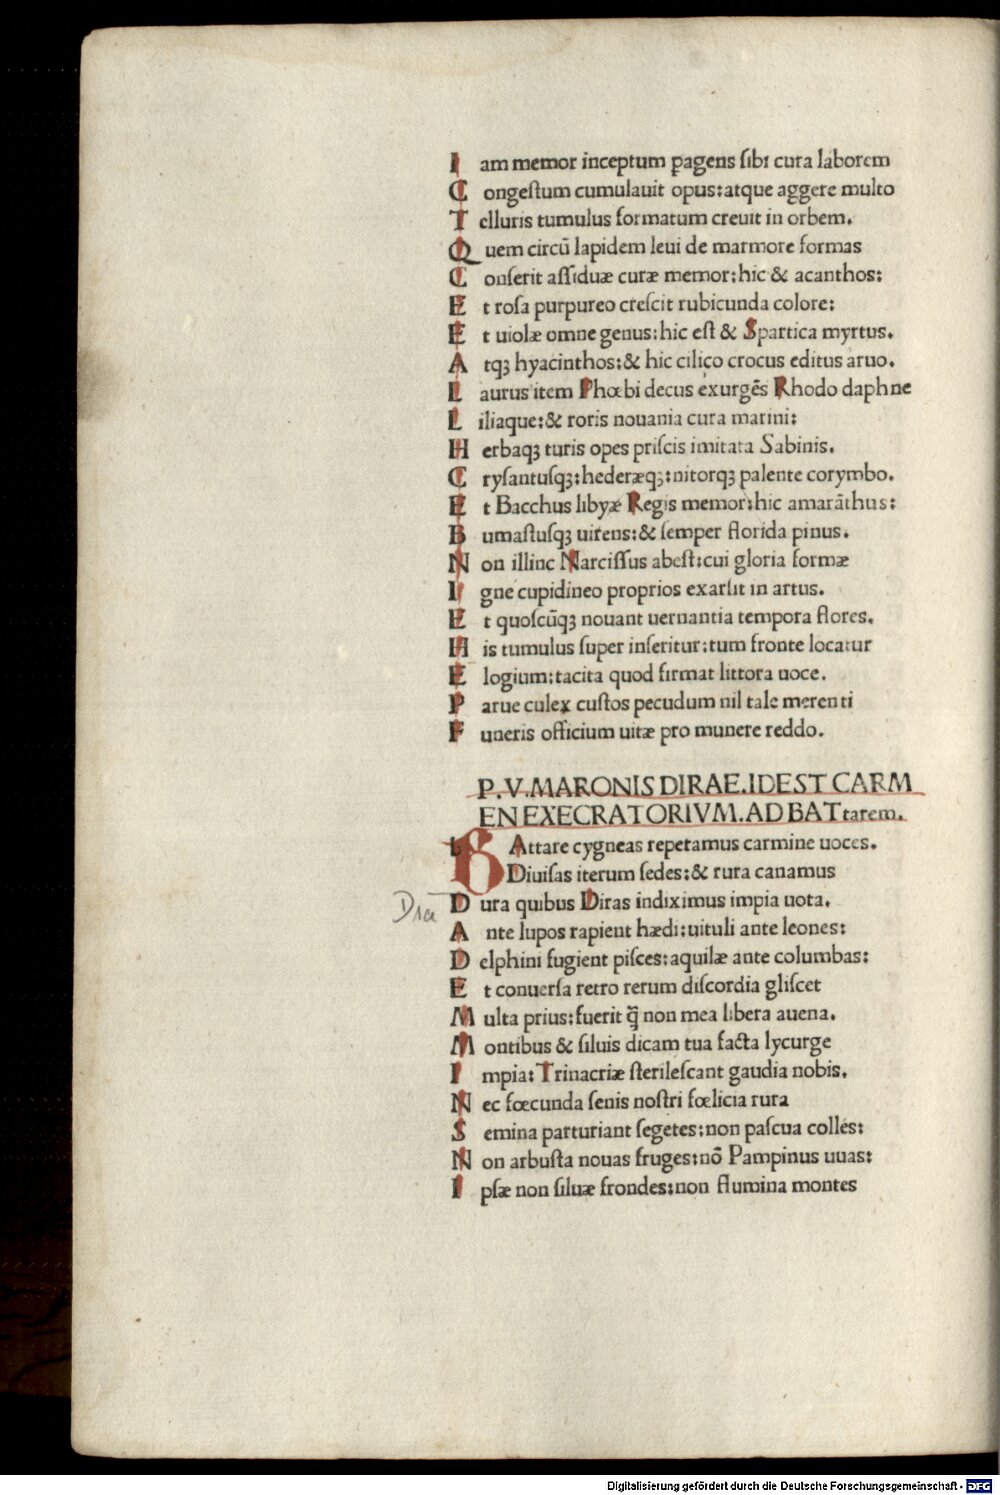 Iam memor inceptum pagens sibi cura laborem
Congestum cumulauit opus: atque aggere multo
Telluris tumulus formatum creuit in orbem.
Quem circū lapidem leui de marmore formas
Conserit assiduæ curæ memor: hic & acanthos:
Et rosa purpureo crescit rubicunda colore:
Et uiolæ omne genus: hic est & Spartica myrtus.
Atqꝫ hyacinthos: & hic cilico crocus editus aruo.
Laurus item Phœbi decus exurgēs Rhodo daphne
Liliaque: & roris nouania cura marini:
Herbaqꝫ turis opes priscis imitata Sabinis.
Crysantusqꝫ: hederæqꝫ: nitorqꝫ palente corymbo.
Et Bacchus libyæ Regis memor: hic amarāthus:
Bumastusqꝫ uirens: & semper florida pinus.
Non illinc Narcissus abest: cui gloria formæ
Igne cupidineo proprios exarsit in artus.
Et quoscūqꝫ nouant uernantia tempora flores.
His tumulus super inseritur: tum fronte locatur
Elogium: tacita quod firmat littora uoce.
Parue culex custos pecudum nil tale merenti
Funeris officium uitæ pro munere reddo.
P. V. MARONIS DIRAE. IDEST CARM
EN EXECRATORIVM. AD BATtarem.
BAttare cygneas repetamus carmine uoces.
Diuisas iterum sedes: & rura canamus
Dura quibus Diras indiximus impia uota.
Ante lupos rapient hædi: uituli ante leones:
Delphini fugient pisces: aquilæ ante columbas:
Et conuersa retro rerum discordia gliscet
Multa prius: fuerit q̄ non mea libera auena.
Montibus & siluis dicam tua facta lycurge
Impia: Trinacriæ sterilescant gaudia nobis.
Nec fœcunda senis nostri fœlicia rura
Semina parturiant segetes: non pascua colles:
Non arbusta nouas fruges: nō Pampinus uuas:
Ipsæ non siluæ frondes: non flumina montes
Digitalisierung gefördert durch die Deutsche Forschungsgemeinschaft - DFG